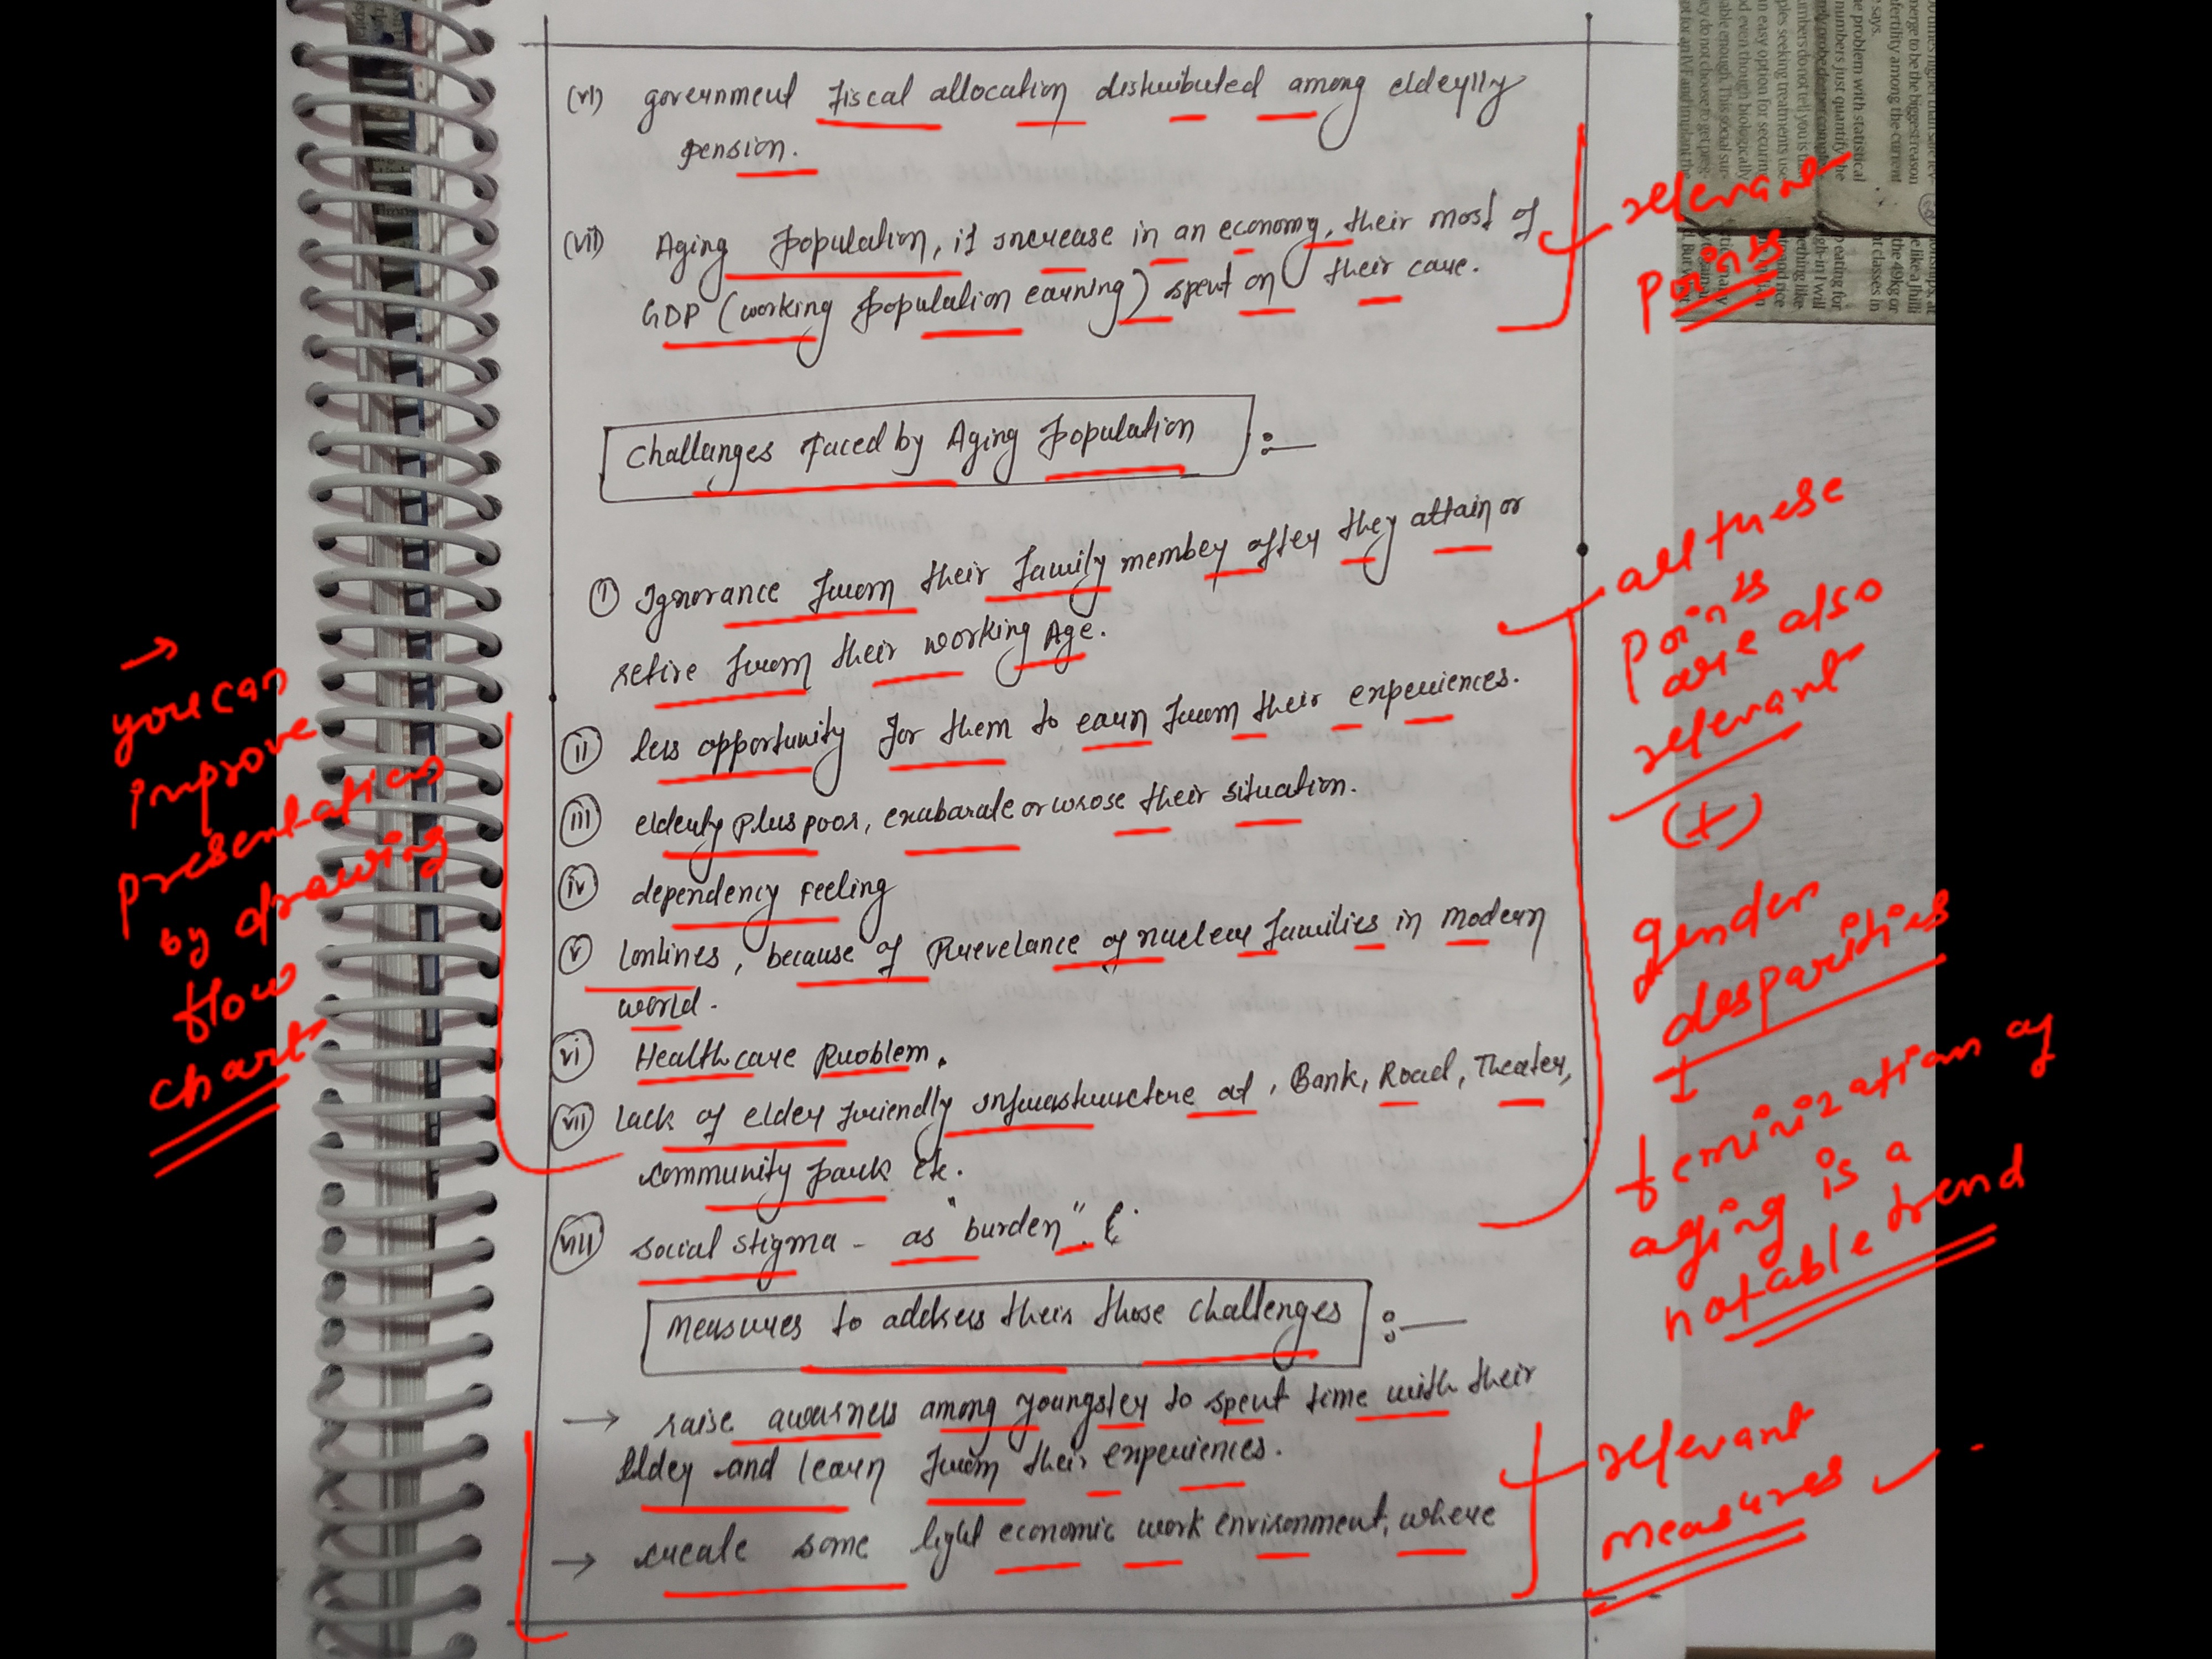 (vi) government fiscal allocation distributed among elderlly
pension.
(vii) Aging population, if increase in an economy, their most of
GDP (working population earning) spent on their care.
relevant
points
Challanges faced by Aging population :-
(i) Ignorance from their family member after they attain or
retire from their working Age.
(ii) less opportunity for them to earn from their experiences.
(iii) elderly plus poor, exabarate or wrose their situation.
(iv) dependency feeling
(v) lonlines, because of Prevelance of nuclear families in modern
world.
(vi) Healthcare Problem.
(vii) lack of elder friendly infrastructure at, Bank, Road, Theater,
community park etc.
(viii) social stigma - as "burden".
→ you can
improve
presentation
by drawing
flow
chart
all these
points
are also
relevant
(+)
gender
desparities
feminization of
aging is a
notable trend
measures to address their those challenges :-
→ raise awarness among youngster to spent time with their
Elder and learn from their experiences.
→ create some light economic work environment, where
relevant
measures
says.
the problem with statistical
numbers just quantify the
fertility among the current